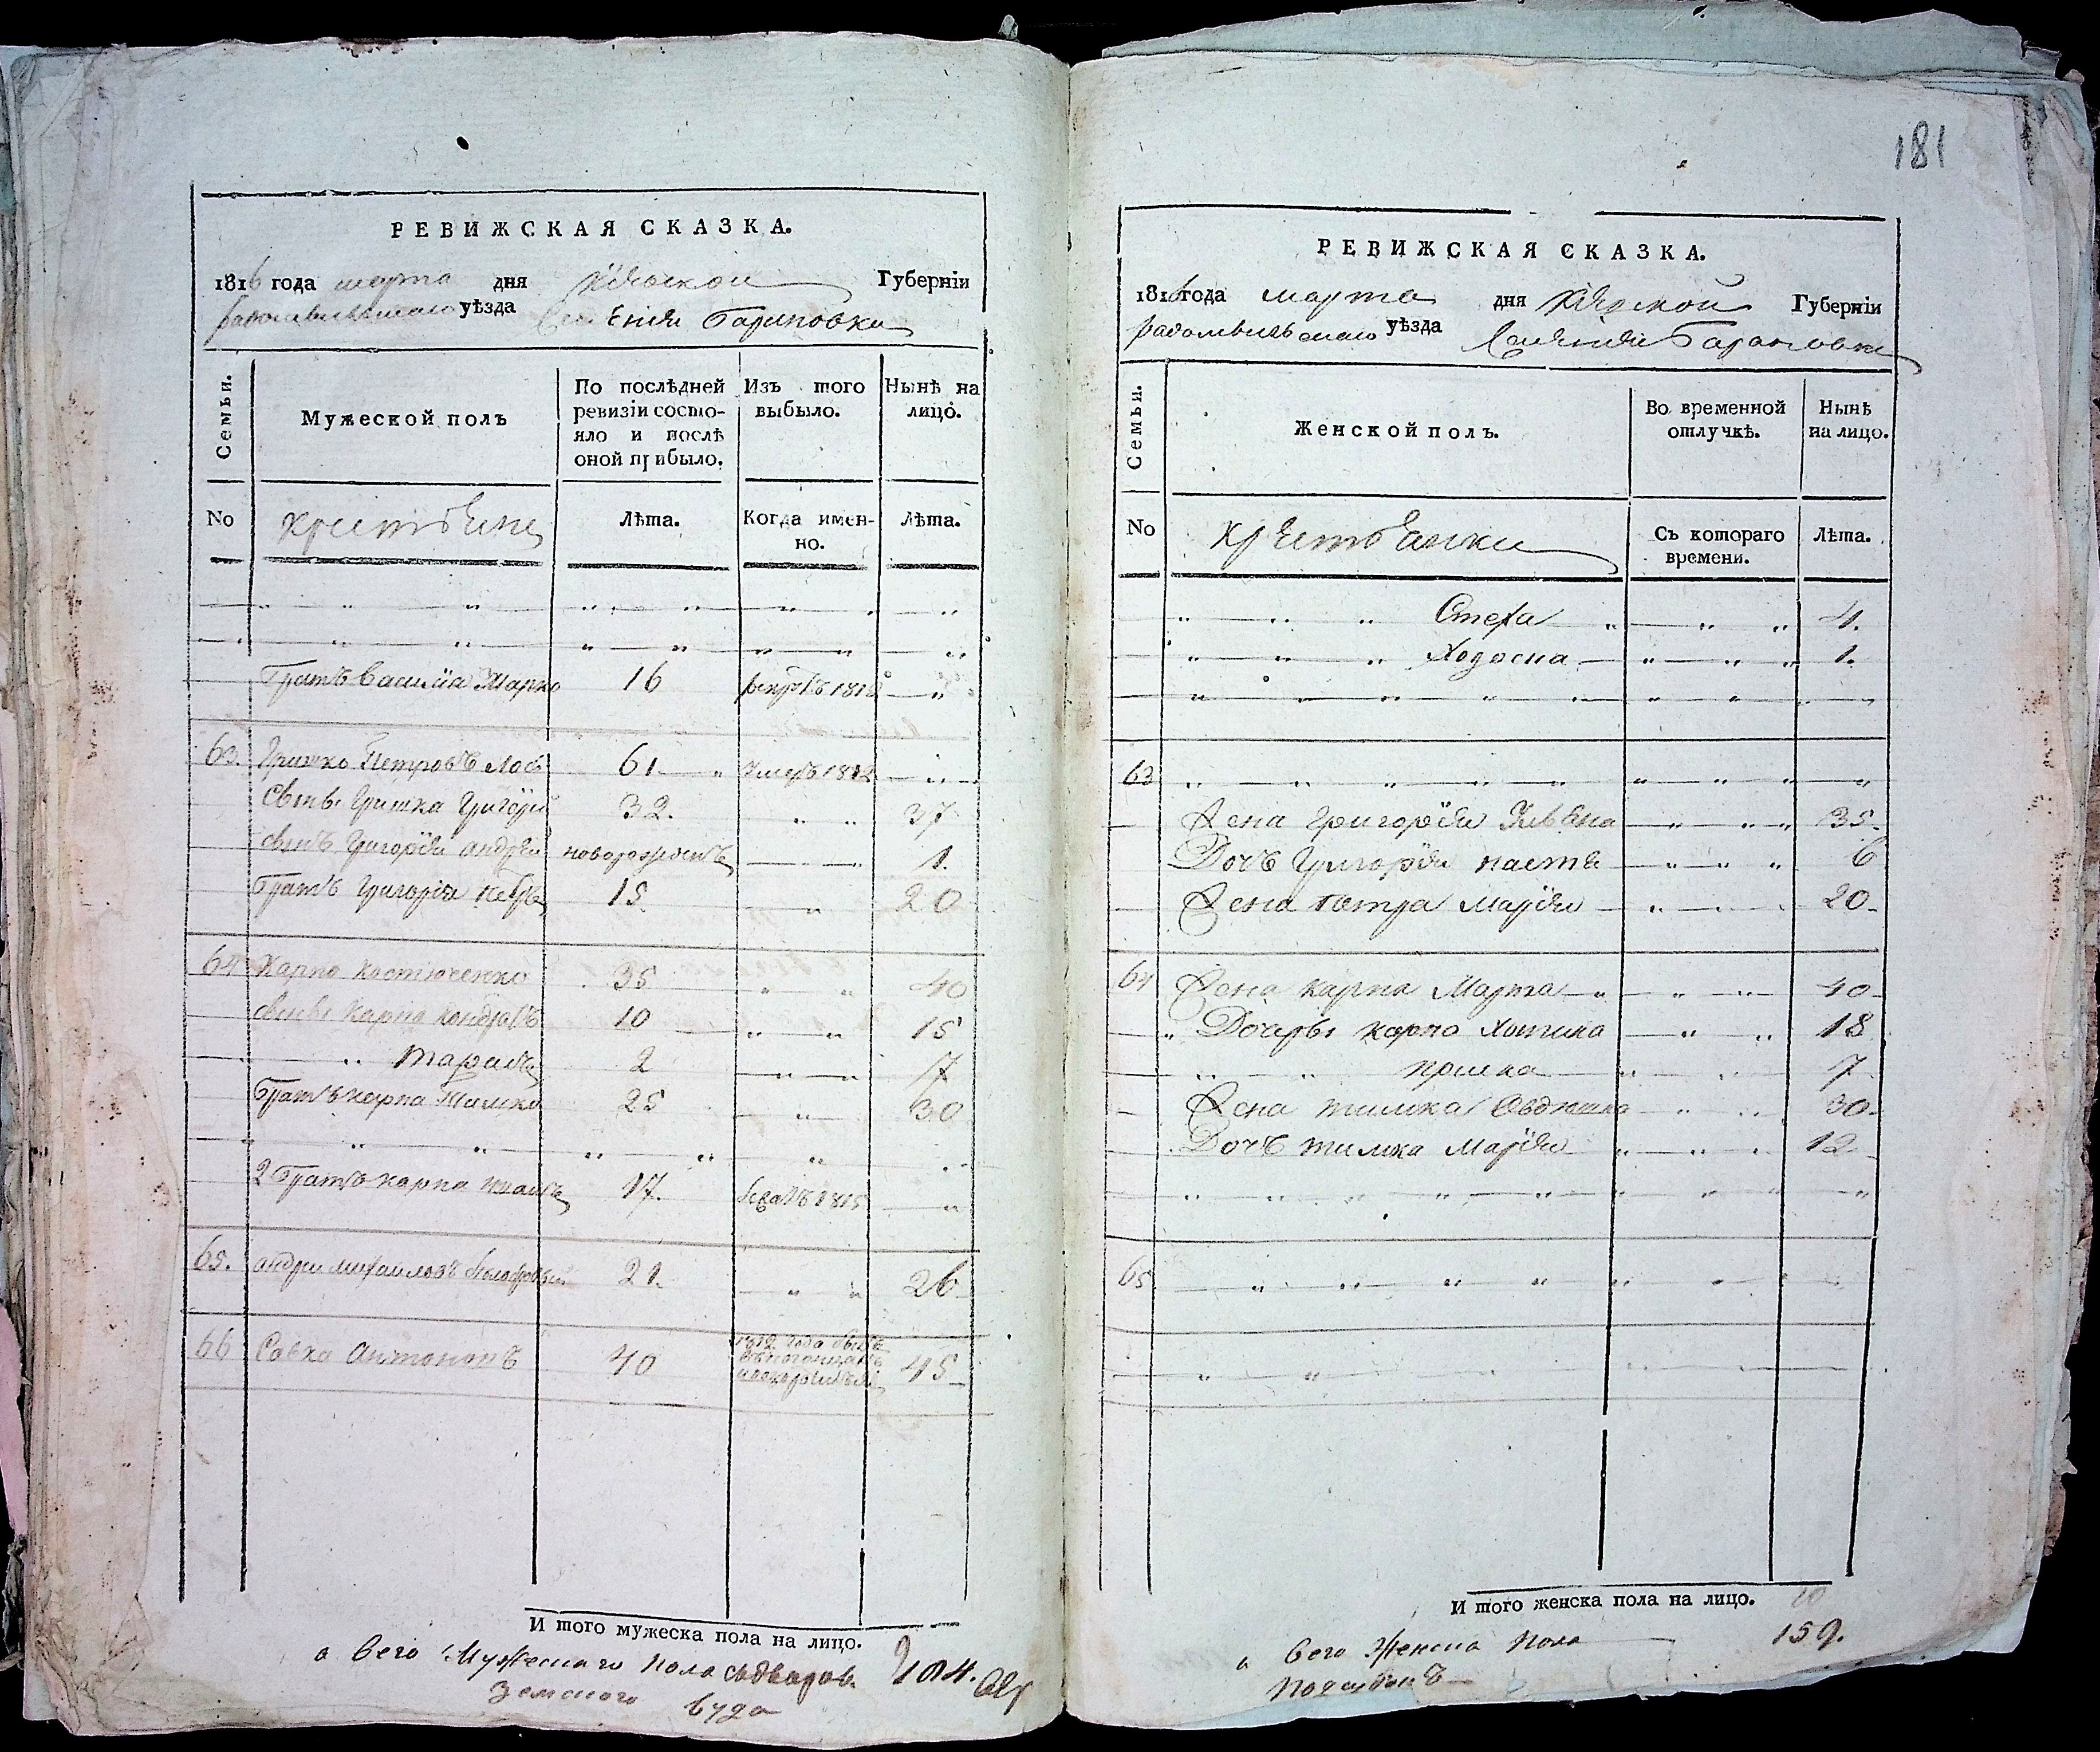 РЕВИЖСКАЯ СКАЗКА.
1816 года марта дня Кіевской Губерніи
радомысльскаго уѣзда Селенія Барановки
Семьи.
Мужеской полъ
По послѣдней ревизіи состо-
яло и послѣ
оной прибыло.
Изъ того
выбыло.
Нынѣ на
лицо.
No
крестьяне
Лѣта.
Когда имен-
но.
Лѣта.
Братъ Василія Марко 16 1812
63. Гришко Петровъ Лось 61 умеръ 1812
Сынъ Гришка Григорій 32. 37
Сынъ Григорія андрей новорожденъ 1.
Братъ Григорія Петръ 15. 20
64 Карпо Костюченко 35 40
Сынъ Карпа Кондратъ 10 15
Тарасъ 2 7
Братъ карпа Тимко 25 30
2 Братъ карпа 17. 1815
65. андрей михаиловъ 21. 26
66 Савка Антоновъ 40 1812 года 45
И того мужеска пола на лицо. 9
а всего Мужескаго пола 184.
Земского суда
181
РЕВИЖСКАЯ СКАЗКА.
1816 года марта дня Кіевской Губерніи
радомысльскаго уѣзда Селенія Барановки
Семьи.
Женской полъ.
Во временной
отлучкѣ.
Нынѣ
на лицо.
No
крестьянки
Съ котораго
времени.
Лѣта.
Стеха 4.
Ходоска 1.
63
Жена Григорія Ульяна 35.
Дочь Григорія настя 6
Жена петра Марія 20
64 Жена карпа Марта 40
Дочеры карпа 18
Приска 7
Жена тимка Овдюшка 30
Дочь тимка Марія 12
65
И того женска пола на лицо. 10
а всего Женска пола 159.